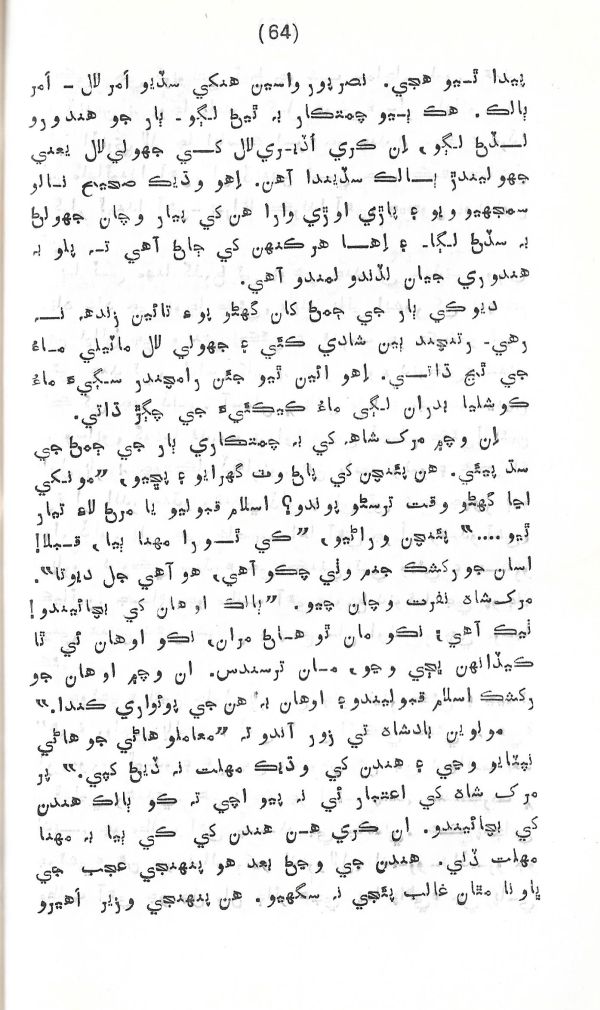 (64)
پيدا ٿيو هجي. نصرپور واسين هنکي سڏيو اُمر لال - اُمر
ٻالڪ. هڪ ٻيو چمتڪار به ٿيڻ لڳو- ٻار جو هندورو
لڏڻ لڳو، اِن ڪري اُڏيريلال کي جهوليلال يعني
جهوليندڙ ٻالڪ سڏيندا آهن. اِهو وڌيڪ صحيح نالو
سمجهيو ويو ۽ پاڙي اوڙي وارا هن کي پيار وچان جهولڻ
به سڏڻ لڳا- ۽ اِها هر ڪنهن کي ڄاڻ آهي ته پلو به
هندوري جيان لڏندو لمندو آهي.
ديوڪي ٻار جي ڄمڻ کان گهڻو پوءِ تائين زنده نه
رهي- رتنچند ٻين شادي ڪئي ۽ جهولي لال ماٽيلي ماءُ
جي ٿڃ ڌاتي. اِهو ائين ٿيو جئن رامچندر سڳيءَ ماءُ
ڪوشليا بدران لڳي ماءُ ڪيڪئيءَ جي ڇڳڙ ڌاتي.
اِن وچ ۾ مرک شاهه کي به چمتڪاري ٻار جي ڄمڻ جي
سڌ پيئي. هن پئنچن کي پاڻ وٽ گهرايو ۽ پڇيو، ”مونکي
اڃا گهڻو وقت ترسڻو پوندو؟ اسلام قبوليو يا مرڻ لاءِ تيار
ٿيو ....“ پئنچن وراڻيو، ”کي ٿورا مهنا ٻيا، قبلا!
اسان جو رکشڪ جنم وٺي چڪو آهي، هو آهي جل ديوتا“.
مرک شاه نفرت وچان چيو. ”ٻالڪ اوهان کي بچائيندو!
ٺيڪ آهي؛ نڪو مان ٿو هاڻ مران، نڪو اوهان ئي ٿا
ڪيڏانهن ڀڄي وڃو، مان ترسندس. ان وچ ۾ اوهان جو
رکشڪ اسلام قبوليندو ۽ اوهان به هن جي پوئواري ڪندا.“
مولوين بادشاه تي زور آندو ته ”معاملو هاڻي جو هاڻي
نپٽايو وڃي ۽ هندن کي وڌيڪ مهلت نه ڏيڻ کپي.“ پر
مرک شاه کي اعتبار ئي نه پيو اچي ته ڪو ٻالڪ هندن
کي بچائيندو. ان ڪري هن هندن کي کي ٻيا به مهنا
مهلت ڏني. هندن جي وڃڻ بعد هو پنهنجي عجب جي
ڀاونا مٿان غالب پئجي نه سگهيو. هن پنهنجي وزير اُهيرو